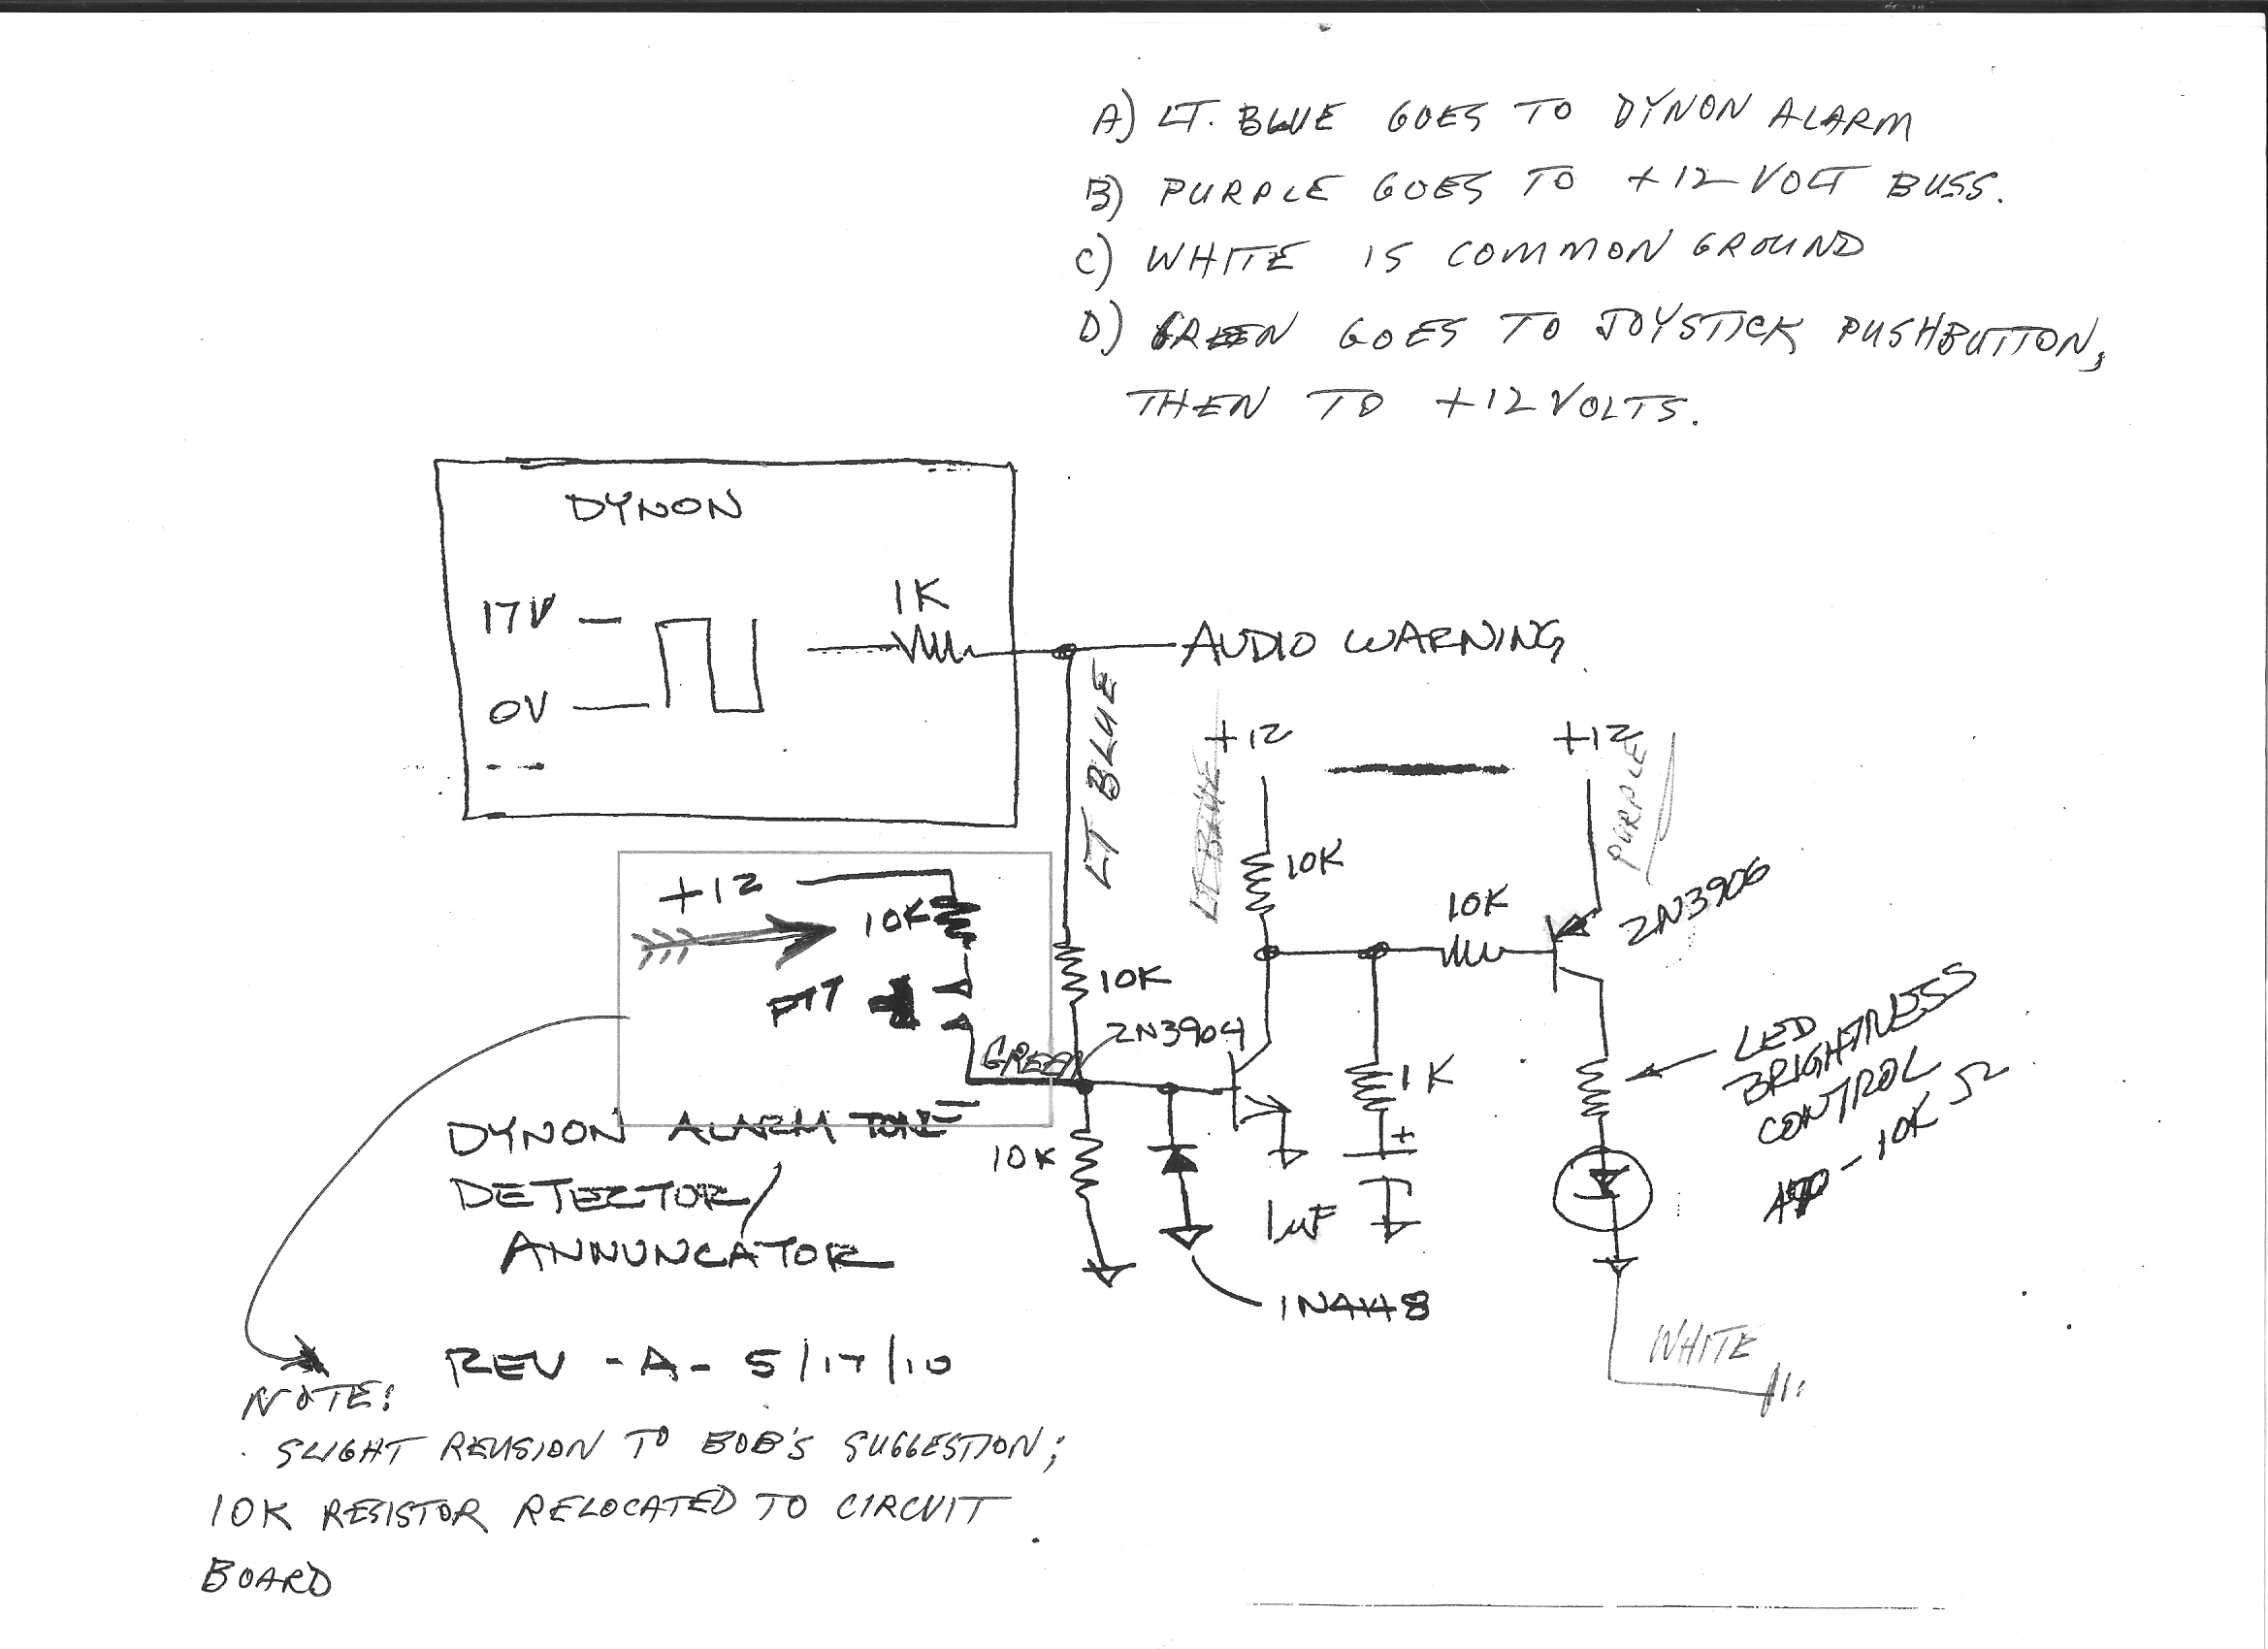 A) LT. BLUE GOES TO DYNON ALARM
B) PURPLE GOES TO +12 VOLT BUSS.
C) WHITE IS COMMON GROUND
D) GREEN GOES TO JOYSTICK PUSHBUTTON,
THEN TO +12 VOLTS.
DYNON
17V
1K
0V
AUDIO WARNING
LT BLUE
LT BLUE
+12
+12
PURPLE
+12
10K
10K
10K
2N3906
PTT
10K
GREEN
2N3904
1K
LED
BRIGHTNESS
CONTROL
- 10K Ω
DYNON ALARM TONE
DETECTOR/
ANNUNCATOR
10K
+
1uF
1N4148
WHITE
REV - A - 5/17/10
NOTE:
SLIGHT REVISION TO BOB'S SUGGESTION;
10K RESISTOR RELOCATED TO CIRCUIT
BOARD